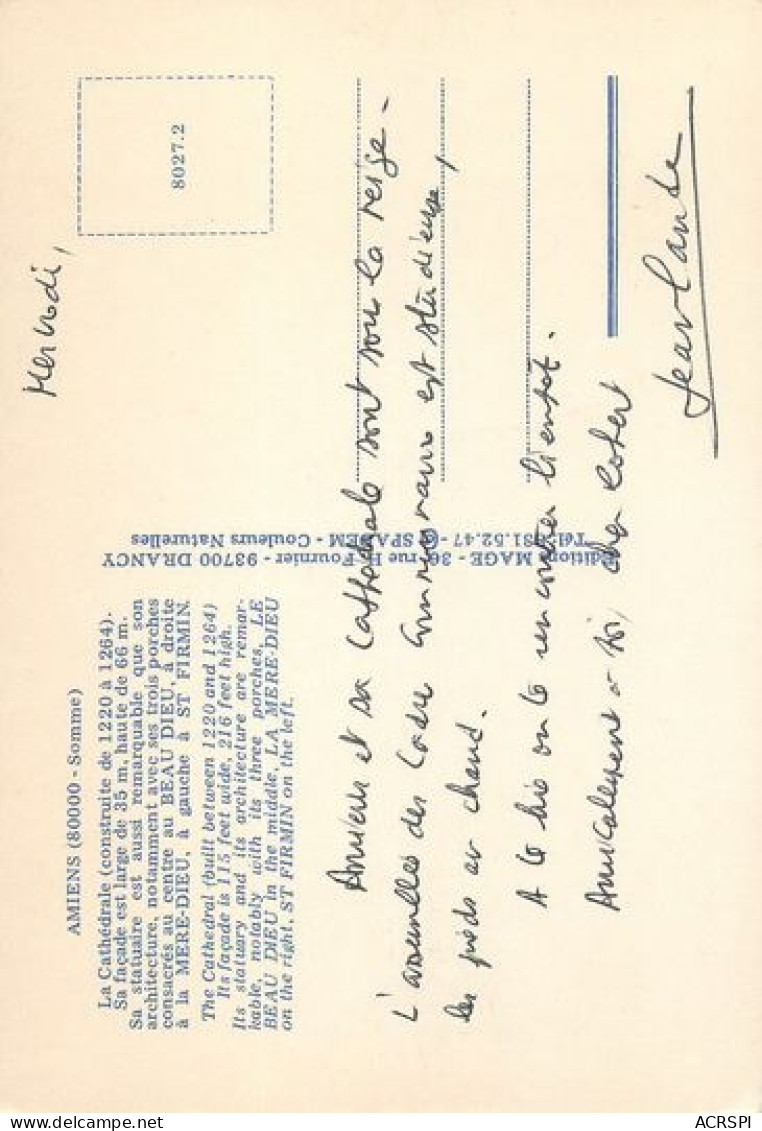 AMIENS (80000 - Somme)
La Cathédrale (construite de 1220 à 1264).
Sa façade est large de 35 m, haute de 66 m.
Sa statuaire est aussi remarquable que son
architecture, notamment avec ses trois porches
consacrés au centre au BEAU DIEU, à droite
à la MERE-DIEU, à gauche à ST FIRMIN.
The Cathedral (built between 1220 and 1264)
Its façade is 115 feet wide, 216 feet high.
Its statuary and its architecture are remar-
kable, notably with its three porches, LE
BEAU DIEU in the middle, LA MERE-DIEU
on the right, ST FIRMIN on the left.
Editions MAGE - 30, rue H. Fournier - 93700 DRANCY
SPADEM - Couleurs Naturelles
8027.2
Mercredi,
Amiens et sa Cathédrale sont sous la neige -
L' des Cadre est studieuse,
les pieds au chaud.
A te lire ou te rencontrer bientôt.
Amicalement à toi, cher Robert
Jean Claude
ACRSPI